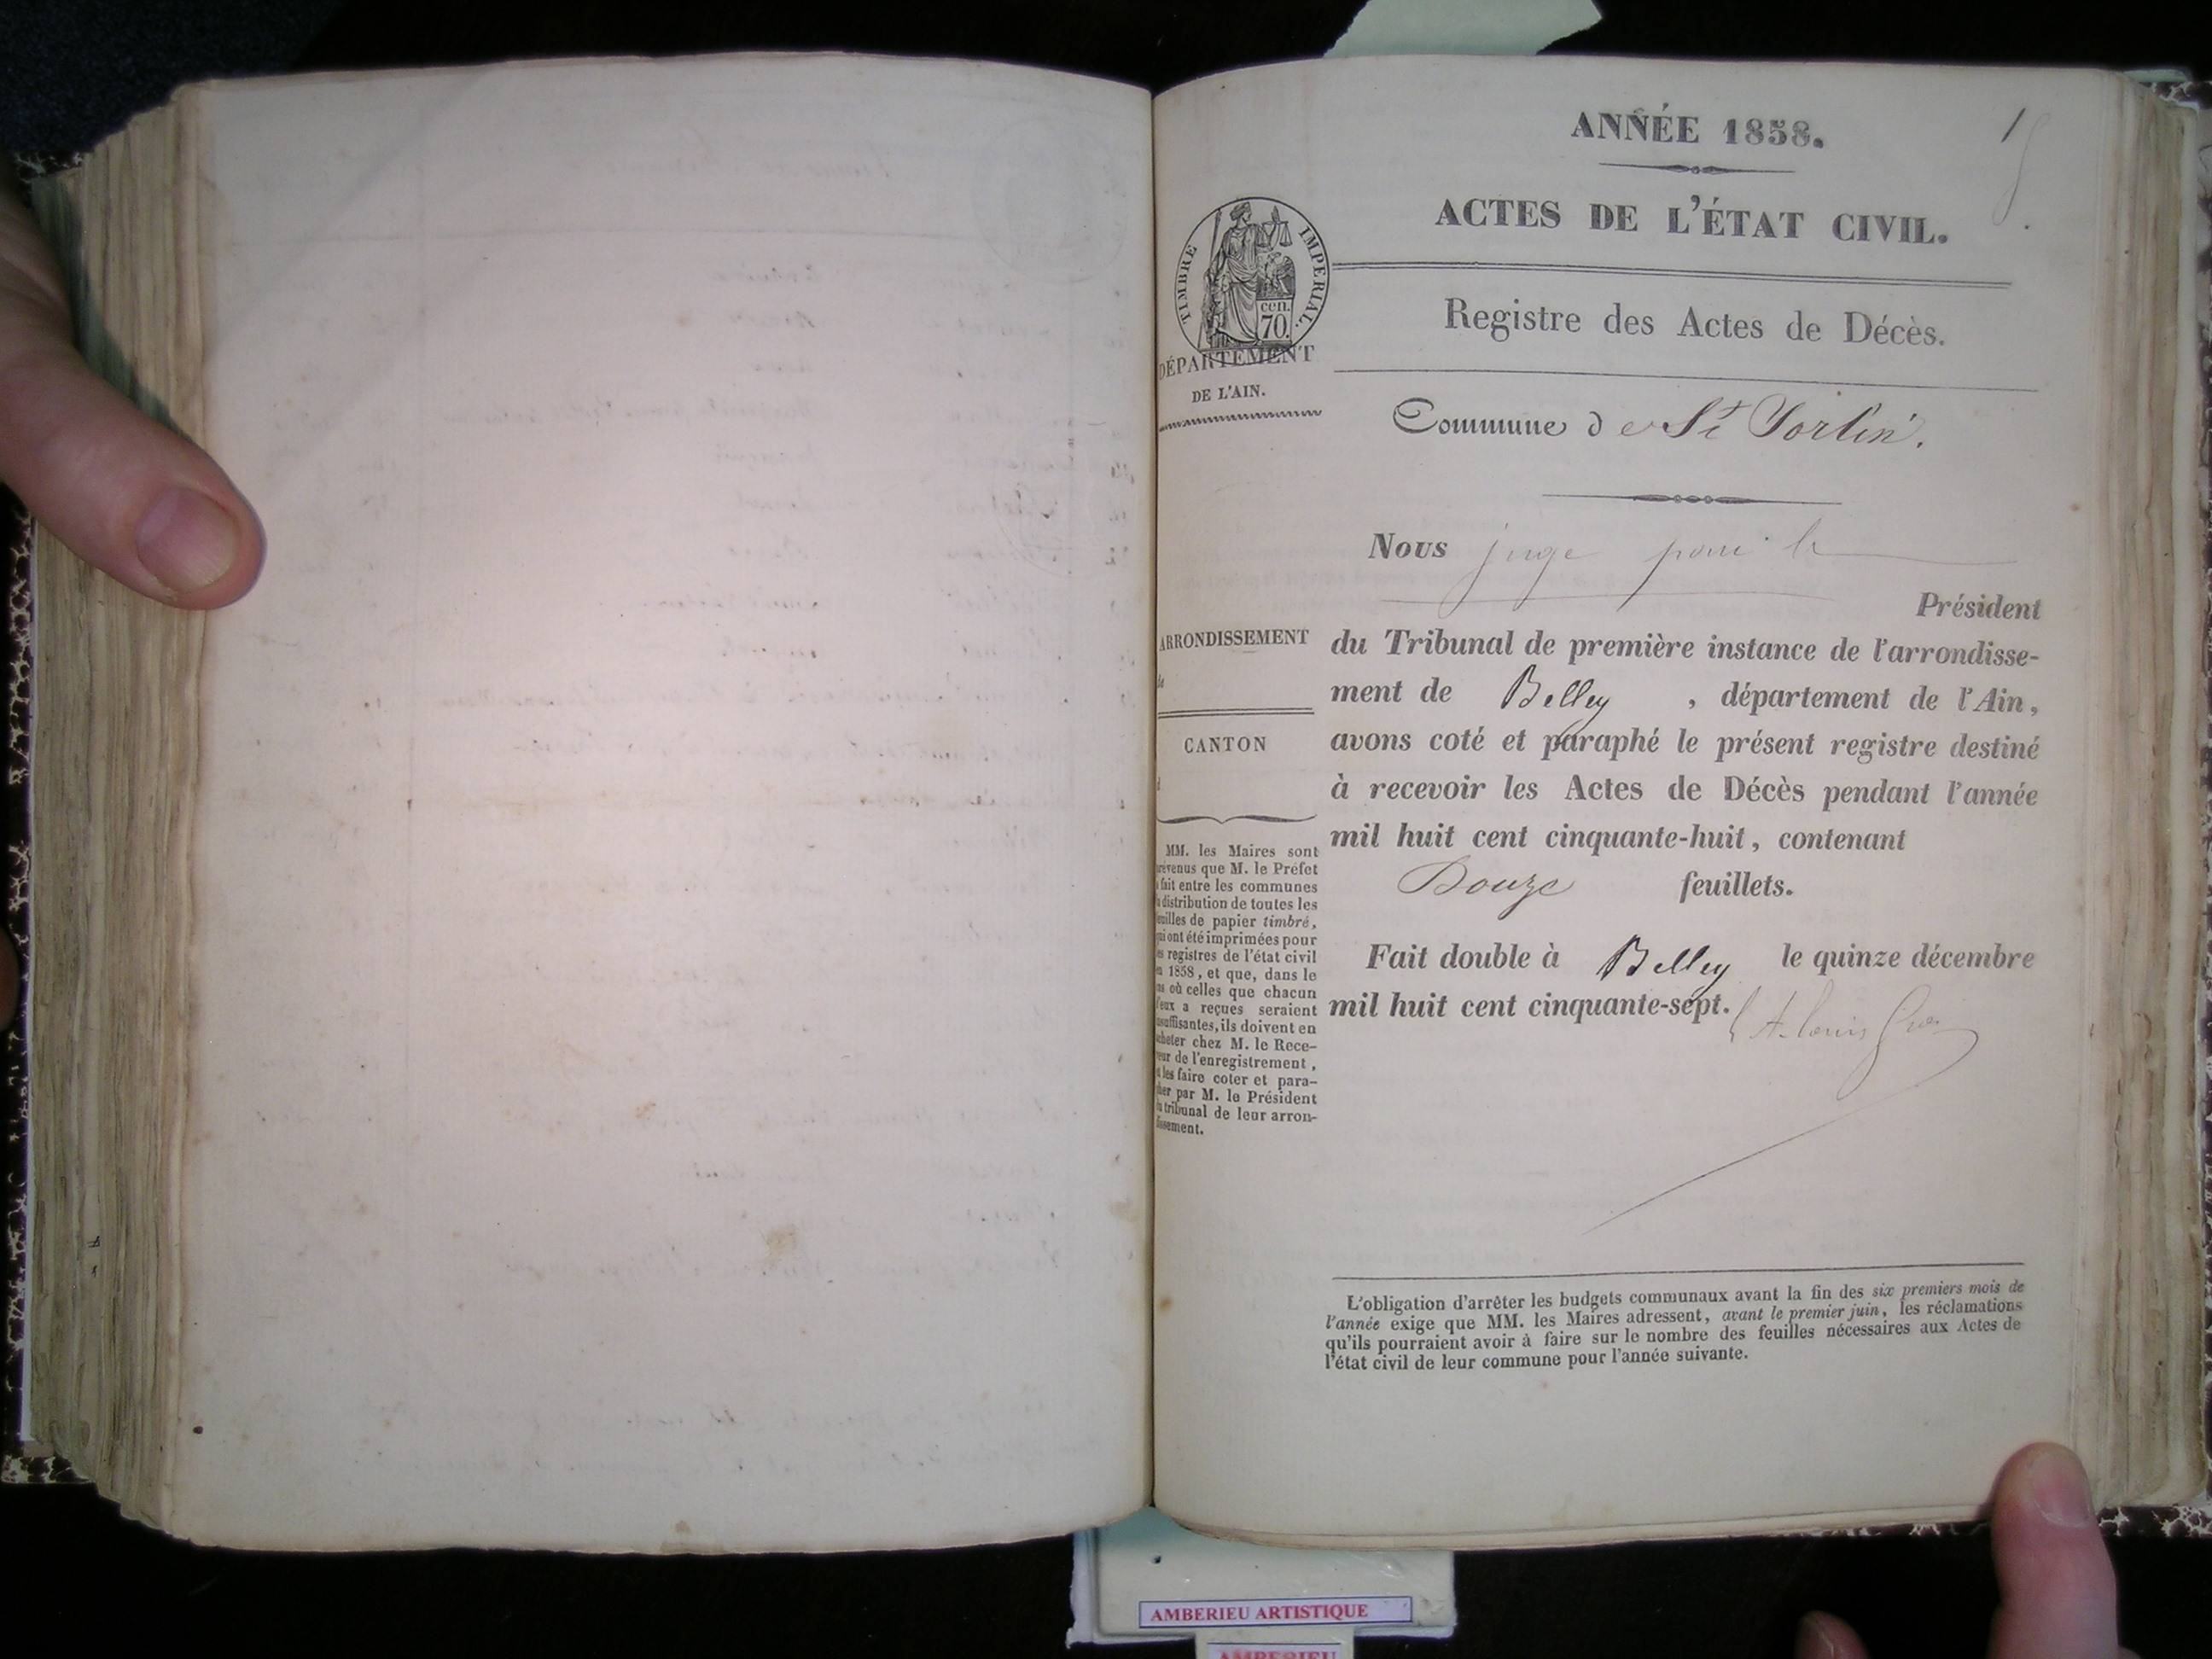 ANNÉE 1858.
1
ACTES DE L'ÉTAT CIVIL.
TIMBRE IMPERIAL.
cen.
70.
Registre des Actes de Décès.
DÉPARTEMENT
DE L'AIN.
Commune de St Vorlin.
Nous juge pour le
Président
ARRONDISSEMENT
de
du Tribunal de première instance de l'arrondisse-
ment de Belley, département de l'Ain,
CANTON
d
avons coté et paraphé le présent registre destiné
à recevoir les Actes de Décès pendant l'année
mil huit cent cinquante-huit, contenant
Douze feuillets.
Fait double à Belley le quinze décembre
mil huit cent cinquante-sept.
MM. les Maires sont
prévenus que M. le Préfet
a fait entre les communes
la distribution de toutes les
feuilles de papier timbré,
qui ont été imprimées pour
les registres de l'état civil
en 1858, et que, dans le
cas où celles que chacun
d'eux a reçues seraient
insuffisantes, ils doivent en
acheter chez M. le Rece-
veur de l'enregistrement,
et les faire coter et para-
pher par M. le Président
du tribunal de leur arron-
dissement.
L'obligation d'arrêter les budgets communaux avant la fin des six premiers mois de
l'année exige que MM. les Maires adressent, avant le premier juin, les réclamations
qu'ils pourraient avoir à faire sur le nombre des feuilles nécessaires aux Actes de
l'état civil de leur commune pour l'année suivante.
AMBERIEU ARTISTIQUE
AMBERIEU